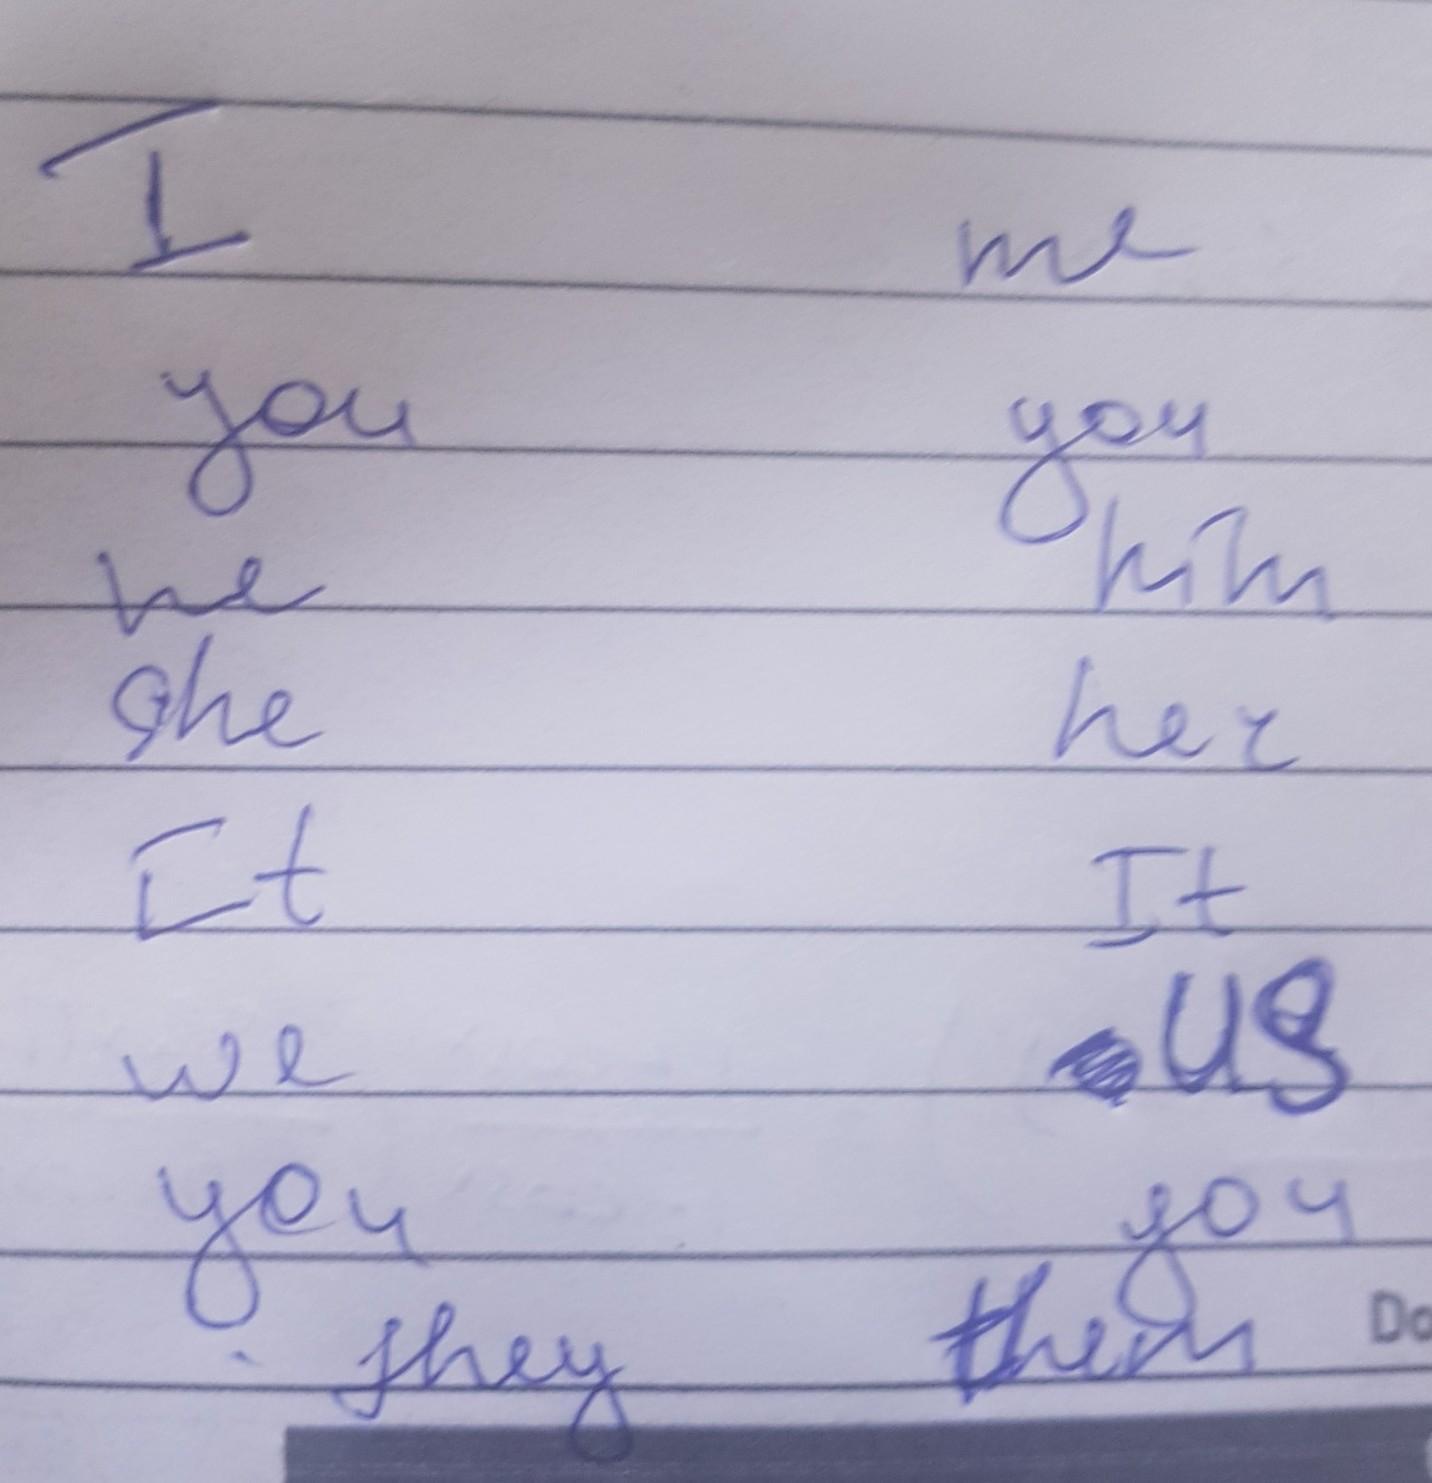 I me
you you
he him
she her
It It
we us
you you
they them
Do